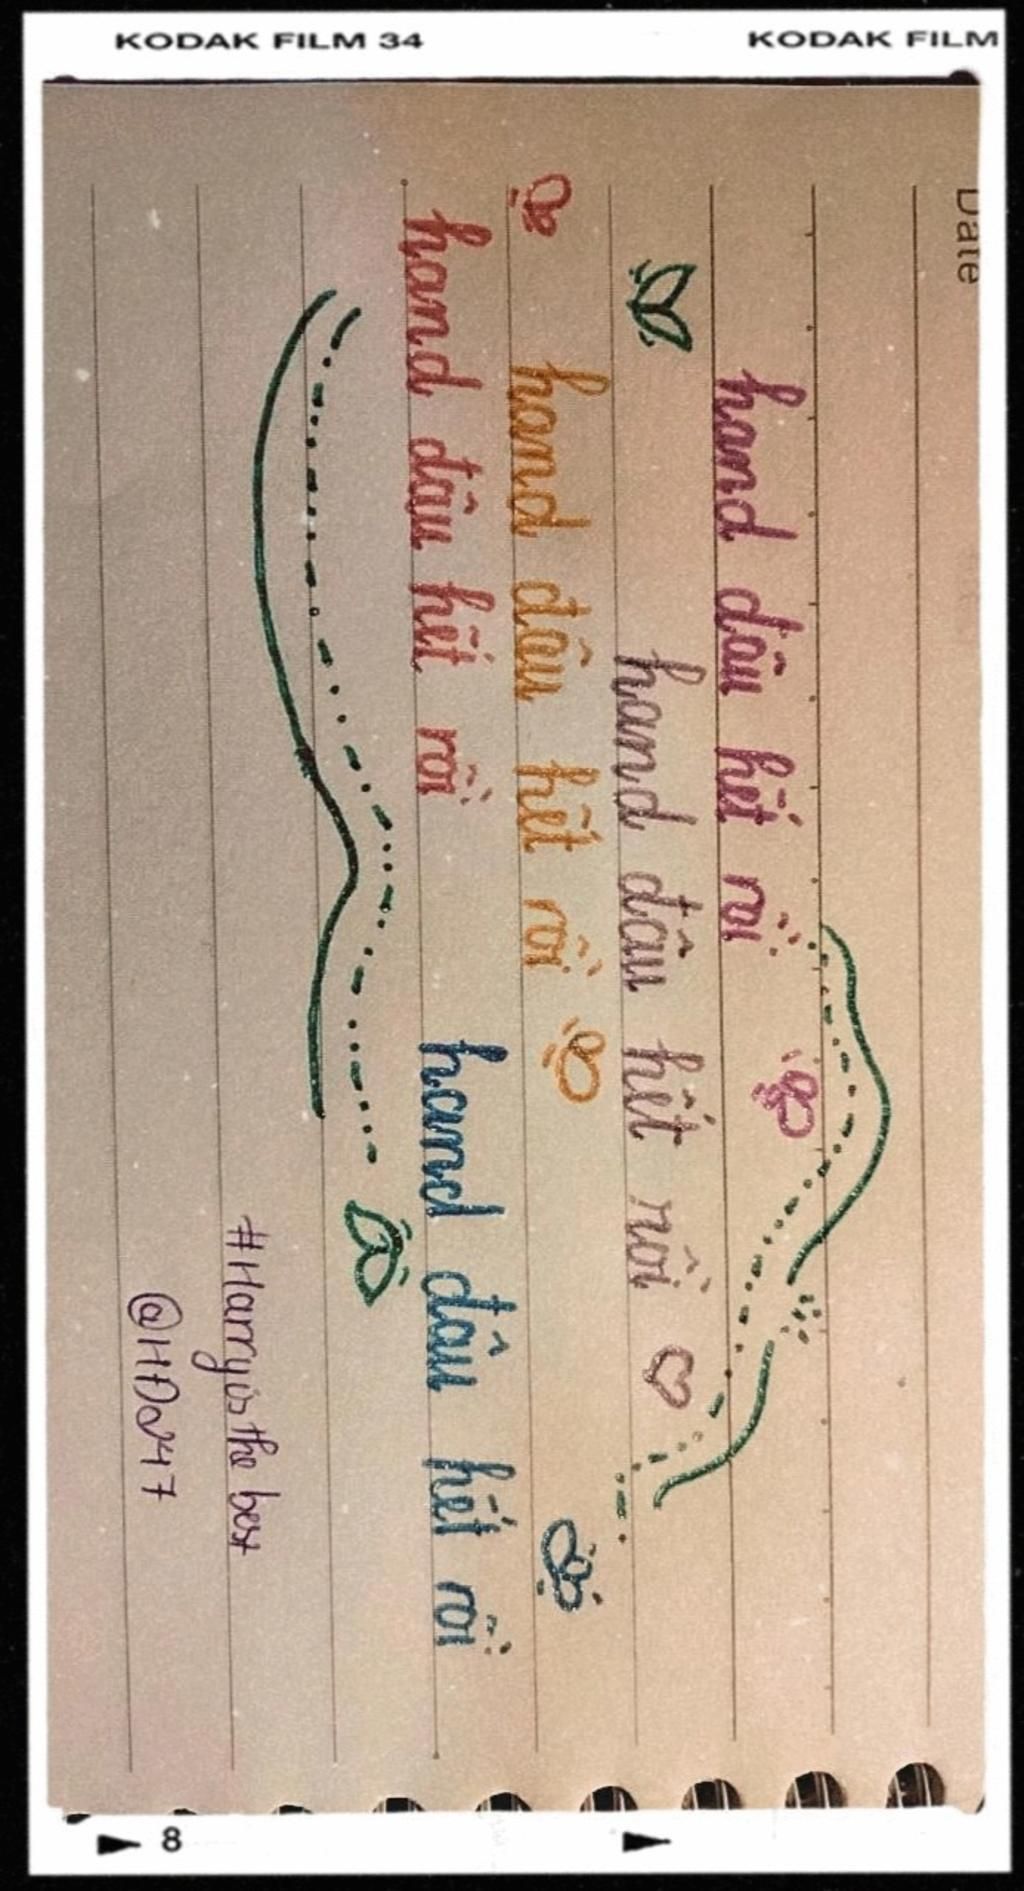 KODAK FILM 34 KODAK FILM
Date
hand đâu hết rồi
hand đâu hết rồi
hand đâu hết rồi
hand đâu hết rồi hand đâu hết rồi
#Harry is the best
8